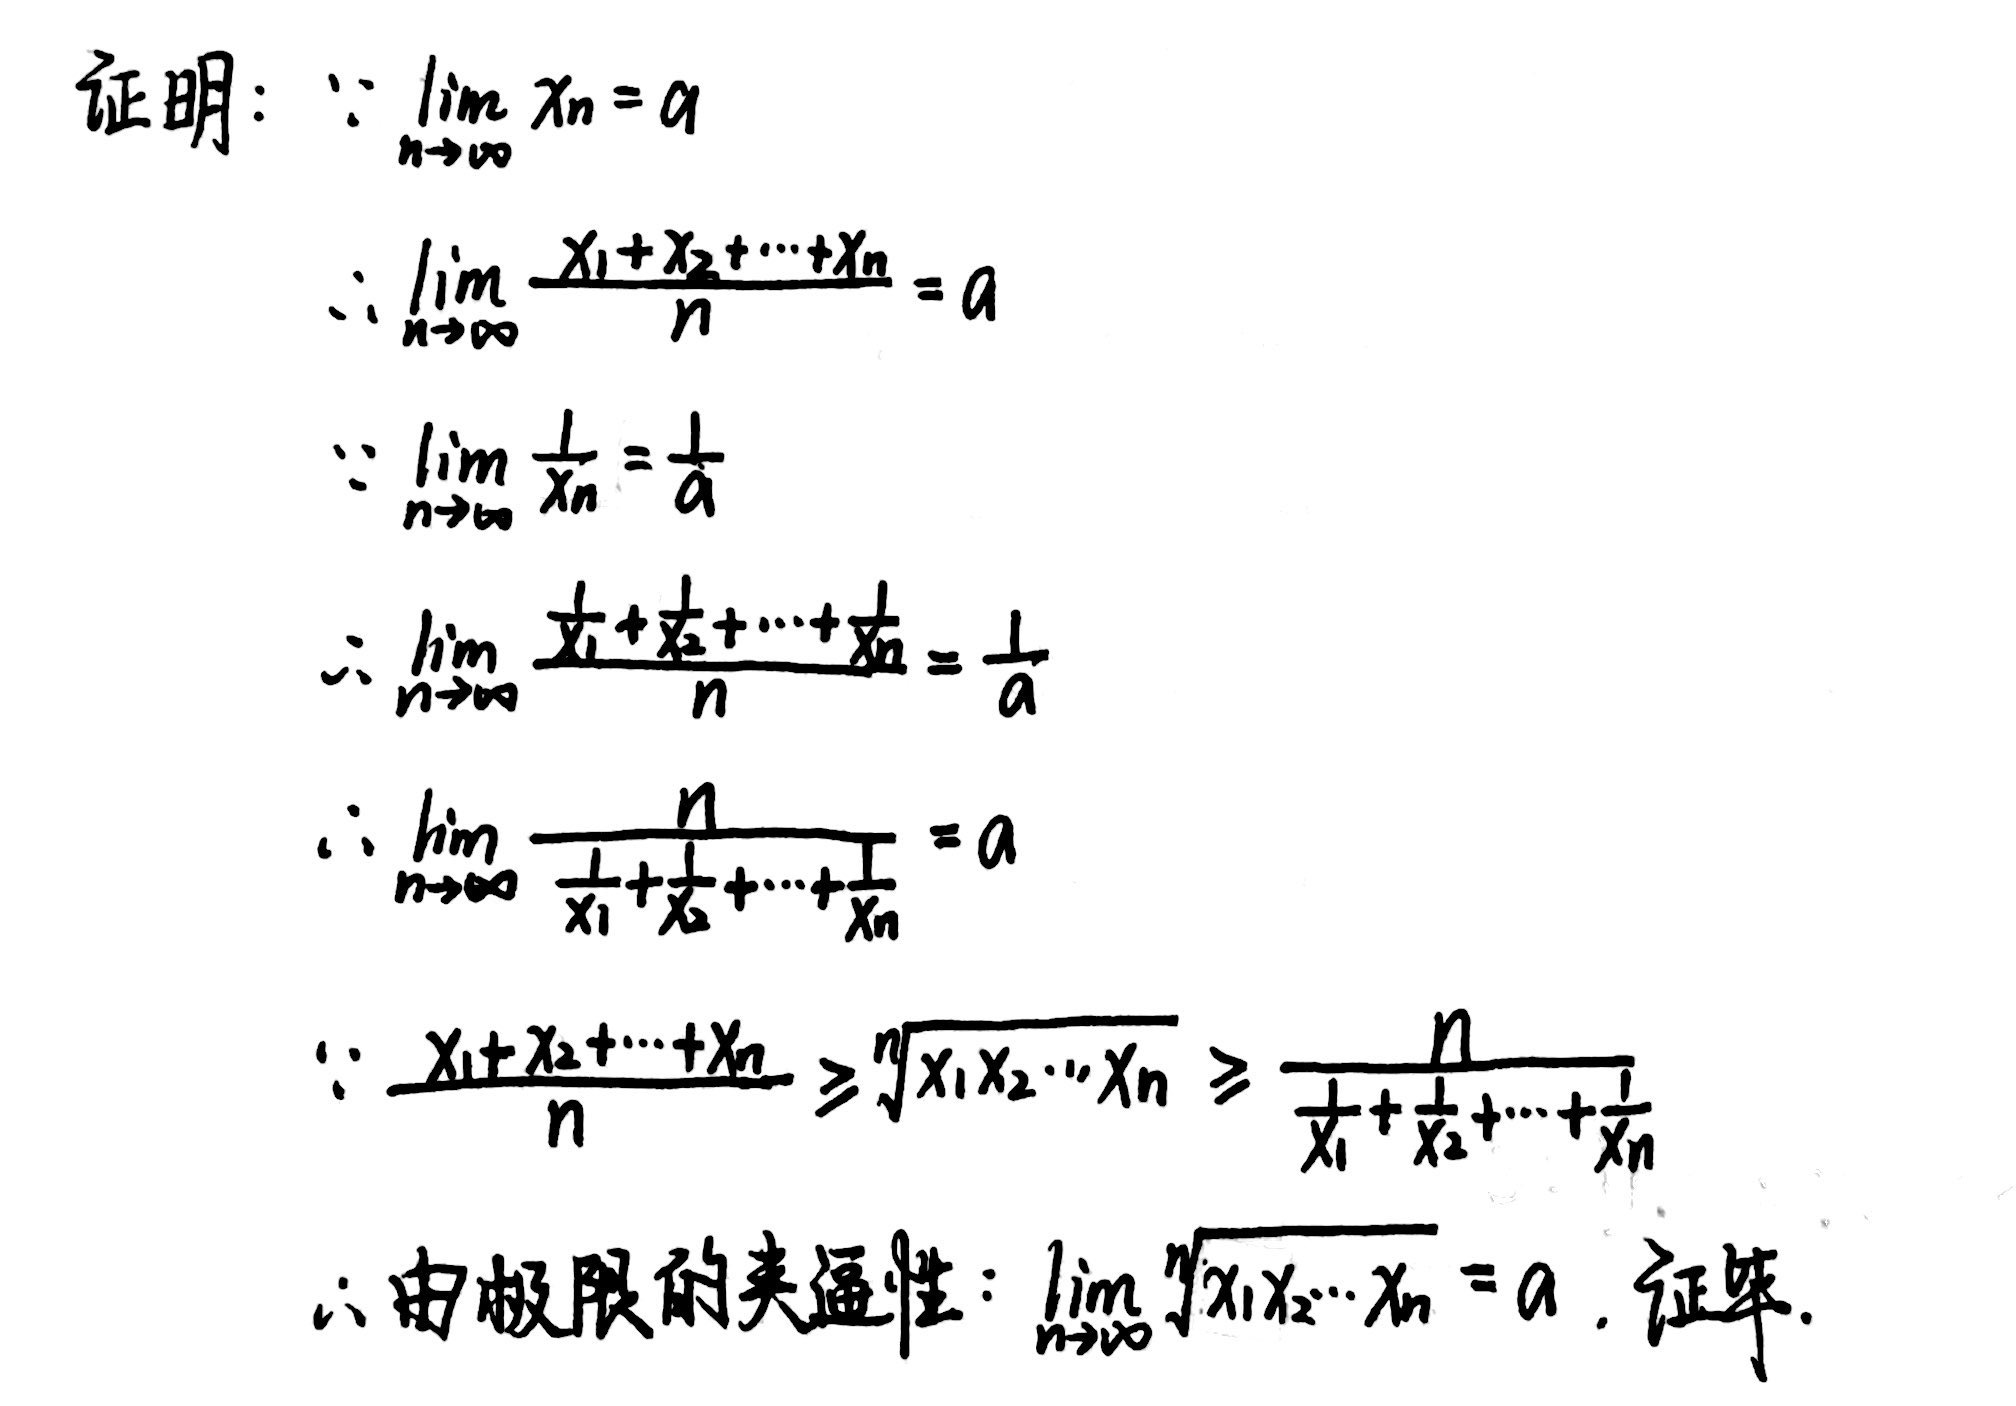 证明: ∵ lim_{n→∞} x_n = a
∴ lim_{n→∞} \frac{x_1+x_2+⋯+x_n}{n} = a
∵ lim_{n→∞} \frac{1}{x_n} = \frac{1}{a}
∴ lim_{n→∞} \frac{\frac{1}{x_1}+\frac{1}{x_2}+⋯+\frac{1}{x_n}}{n} = \frac{1}{a}
∴ lim_{n→∞} \frac{n}{\frac{1}{x_1}+\frac{1}{x_2}+⋯+\frac{1}{x_n}} = a
∵ \frac{x_1+x_2+⋯+x_n}{n} ≥ \sqrt[n]{x_1x_2⋯x_n} ≥ \frac{n}{\frac{1}{x_1}+\frac{1}{x_2}+⋯+\frac{1}{x_n}}
∴ 由极限的夹逼性: lim_{n→∞} \sqrt[n]{x_1x_2⋯x_n} = a. 证毕.